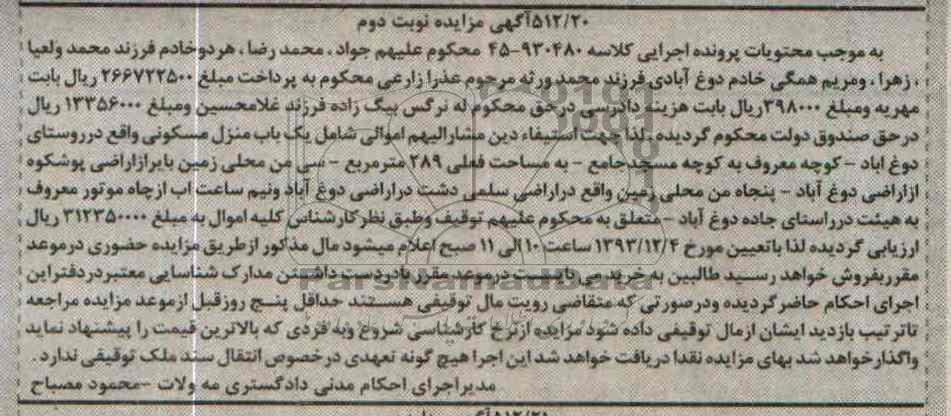 ۵۱۲/۲۰آگهی مزایده نوبت دوم
به موجب محتویات پرونده اجرایی کلاسه ۹۳۰۴۸۰-۴۵ محکوم علیهم جواد، محمد رضا، هردوخادم فرزند محمد ولعیا
، زهرا، ومریم همگی خادم دوغ آبادی فرزند محمدورثه مرحوم عذرا زارعی محکوم به پرداخت مبلغ ۲۶۶۷۲۲۵۰۰ ریال بابت
مهریه ومبلغ ۳۹۸۰۰۰ریال بابت هزینه دادرسی درحق محکوم له نرگس بیگ زاده فرزند غلامحسین ومبلغ ۱۳۳۵۶۰۰۰ ریال
درحق صندوق دولت محکوم گردیده، لذا جهت استیفاء دین مشارالیهم اموالی شامل یک باب منزل مسکونی واقع درروستای
دوغ اباد - کوچه معروف به کوچه مسجدجامع - به مساحت فعلی ۲۸۹ مترمربع - سی من محلی زمین بایرازاراضی پوشکوه
ازاراضی دوغ آباد - پنجاه من محلی زمین واقع دراراضی سلمی دشت دراراضی دوغ آباد ونیم ساعت اب ازچاه موتور معروف
به هیئت درراستای جاده دوغ آباد - متعلق به محکوم علیهم توقیف وطبق نظرکارشناس کلیه اموال به مبلغ ۳۱۲۳۵۰۰۰۰ ریال
ارزیابی گردیده لذا باتعیین مورخ ۱۳۹۳/۱۲/۴ ساعت ۱۰الی ۱۱ صبح اعلام میشود مال مذکور ازطریق مزایده حضوری درموعد
مقرربفروش خواهد رسید طالبین به خرید می بایست درموعد مقرر بادردست داشتن مدارک شناسایی معتبردردفتراین
اجرای احکام حاضرگردیده ودرصورتی که متقاضی رویت مال توقیفی هستند حداقل پنج روزقبل ازموعد مزایده مراجعه
تاترتیب بازدید ایشان ازمال توقیفی داده شود مزایده ازنرخ کارشناسی شروع وبه فردی که بالاترین قیمت را پیشنهاد نماید
واگذارخواهد شد بهای مزایده نقدا دریافت خواهد شد این اجرا هیچ گونه تعهدی درخصوص انتقال سند ملک توقیفی ندارد.
مدیراجرای احکام مدنی دادگستری مه ولات -محمود مصباح
ParsNamadData